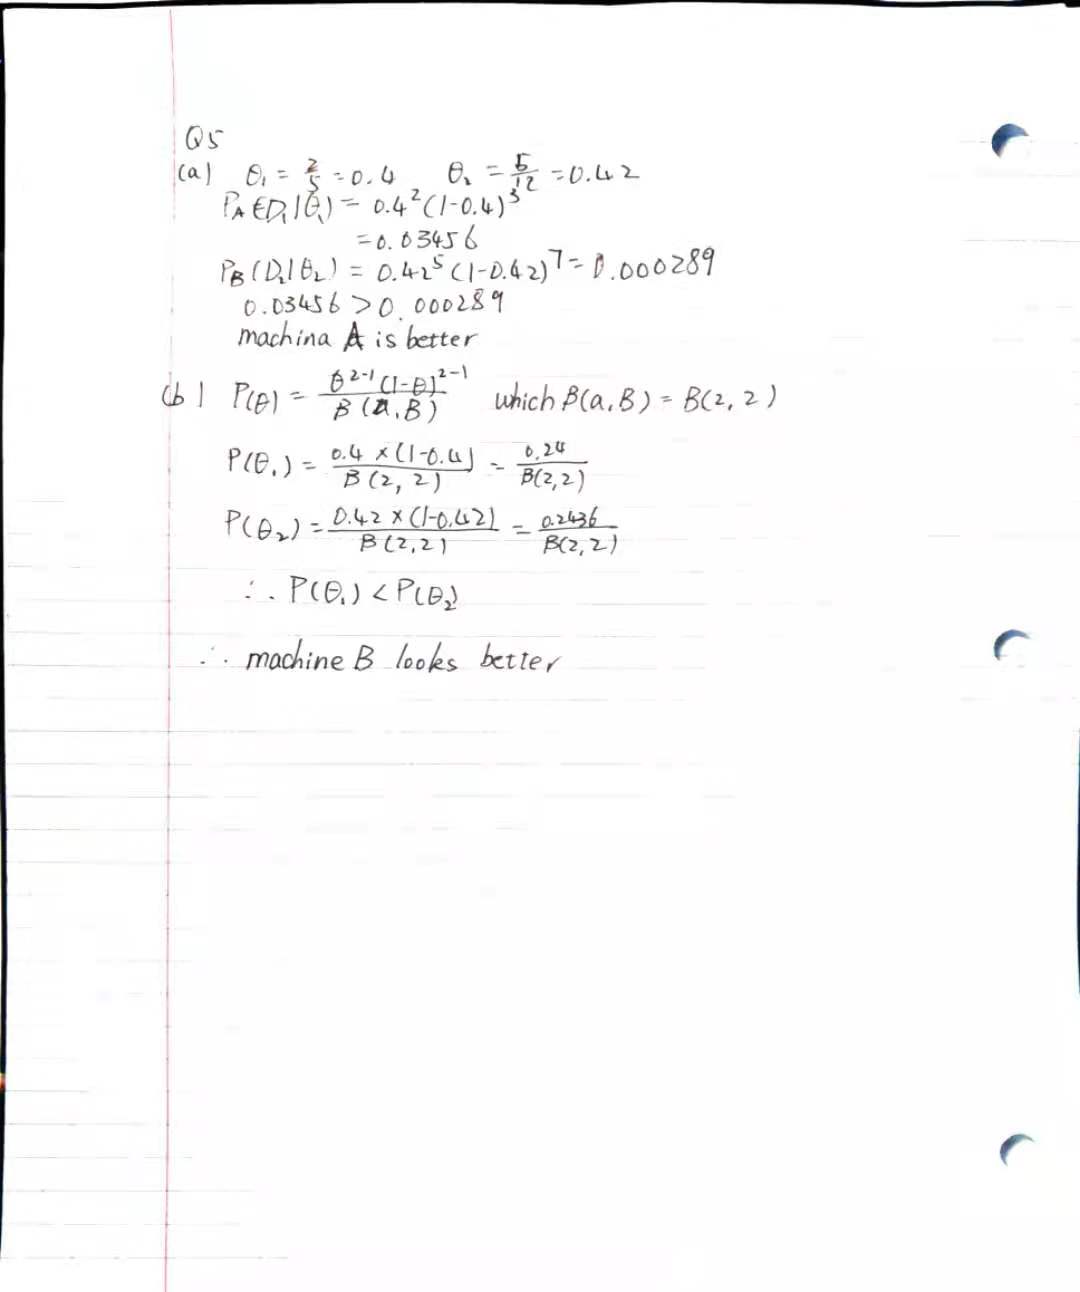 Q5
(a) θ₁ = 2/5 = 0.4 θ₂ = 5/12 = 0.42
P_A(D₁|θ₁) = 0.4²(1-0.4)³
= 0.03456
P_B(D₂|θ₂) = 0.42⁵(1-0.42)⁷ = 0.000289
0.03456 > 0.000289
machina A is better
(b) P(θ) = θ²⁻¹(1-θ)²⁻¹ / B(a,B) which B(a,B) = B(2,2)
P(θ₁) = 0.4×(1-0.4) / B(2,2) = 0.24 / B(2,2)
P(θ₂) = 0.42×(1-0.42) / B(2,2) = 0.2436 / B(2,2)
∴ P(θ₁) < P(θ₂)
∴ machine B looks better